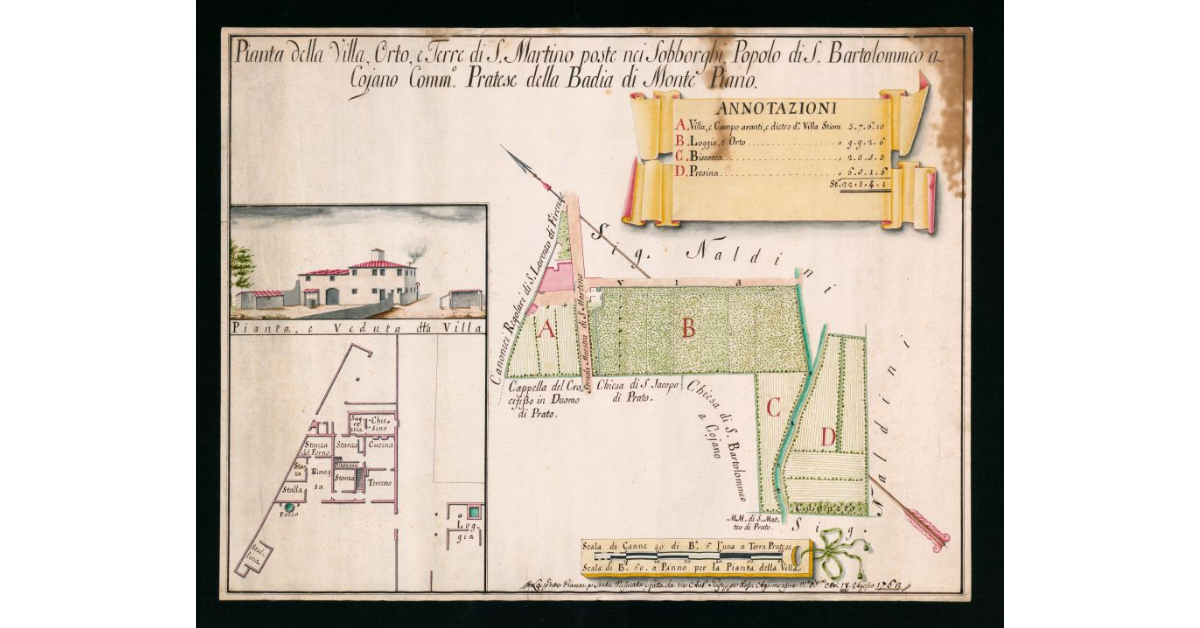 Pianta della Villa, Orto, e Terre di S. Martino poste nei Sobborghi, Popolo di S. Bartolommeo a
Cojano Comm.º Pratese della Badia di Monte Piano.
ANNOTAZIONI
A. Villa, e Campo avanti, e dietro dª Villa Stiora 3.7.6.10
B. Loggia, e Orto
C. Biscotta
D. Presina
St. 22.1.4.1
Sig. Naldini
Canonici Regolari di S. Lorenzo di Firenze
Via
Strada Maestra di S. Martino
A
B
C
D
Cappella del Cro
cifisso in Duomo
di Prato.
Chiesa di S. Jacopo
di Prato.
Chiesa di S. Bartolommeo
a Cojano
M.M. di S. Mat
teo di Prato.
Sig. Naldini
Pianta, e Veduta dtta Villa
Sag
restia
Chie
sino
Stanza
del Forno
Stanza
Cucina
Stan
za
Rimes
sa
Stanza
Terreno
Stalla
Pozzo
Stal
lina
Log
gia
Scala di Canne 30 di Bª 6 l'una a Terra Pratese
Scala di Bª 50. a Panno per la Pianta della Villa